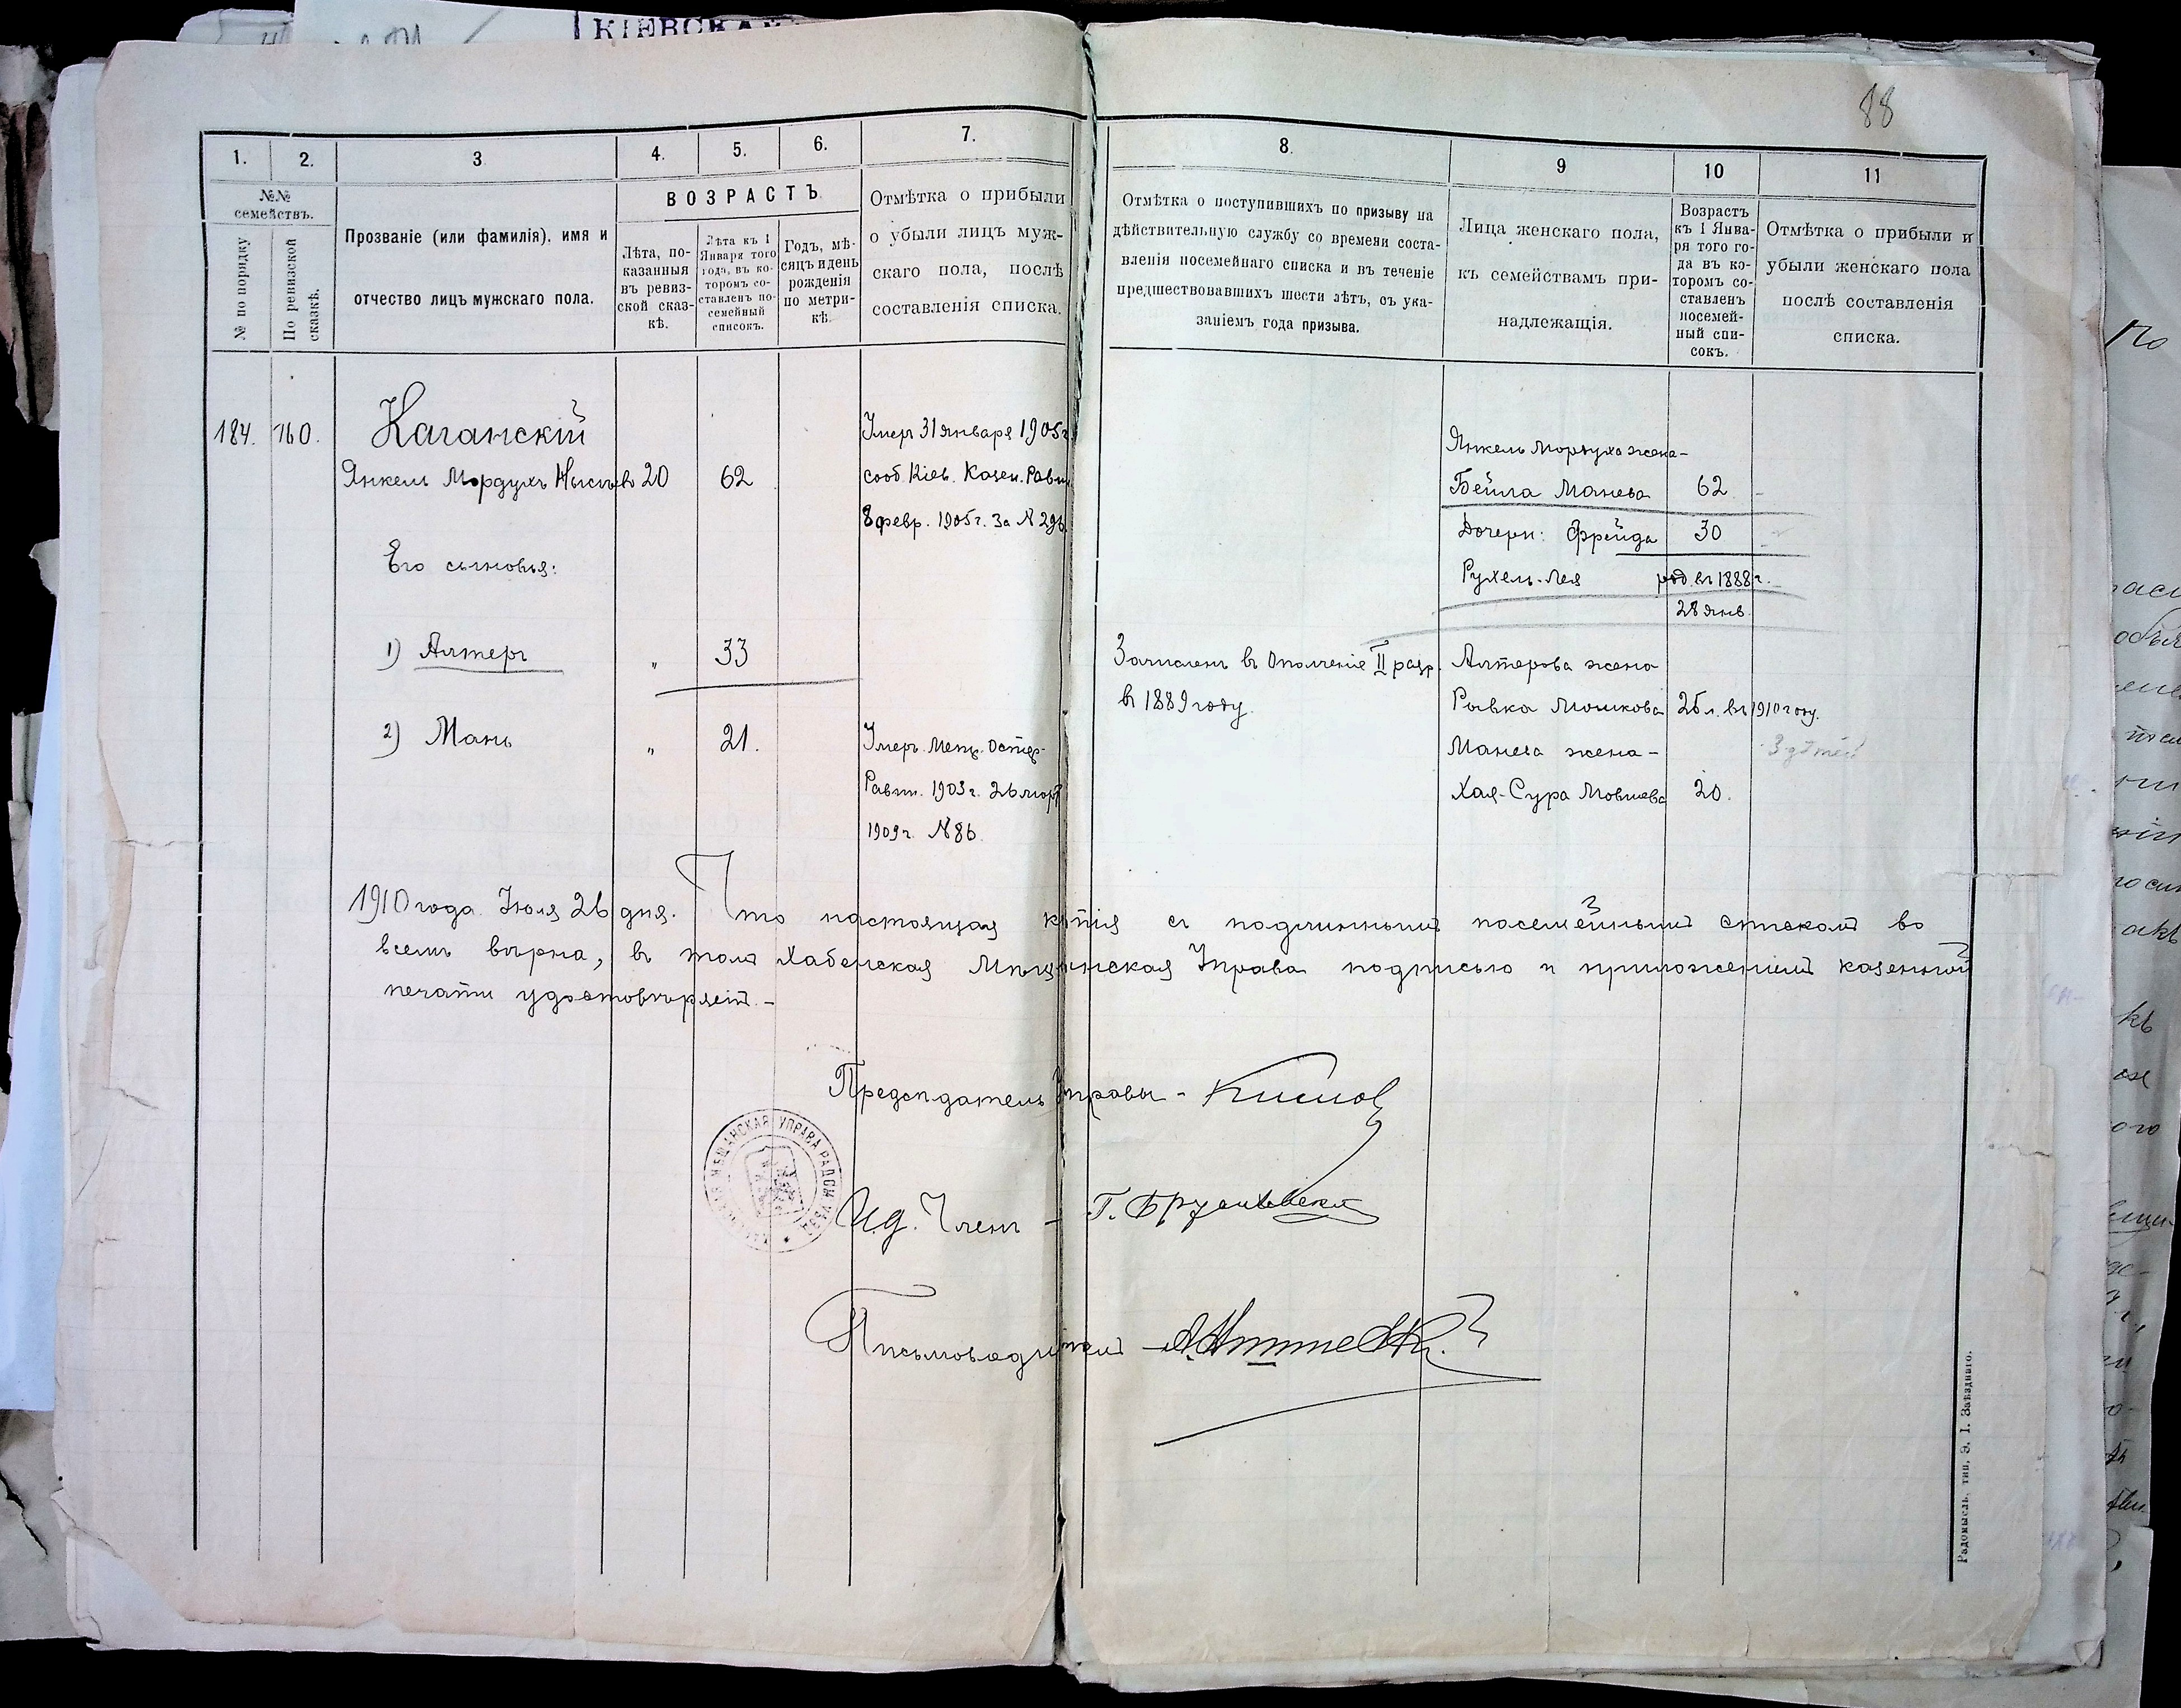 КІЕВСКАЯ
88
1.
2.
3.
4.
5.
6.
7.
8.
9
10
11
№№ семействъ.
№ по порядку
По ревизской сказкѣ.
Прозваніе (или фамилія), имя и
отчество лицъ мужскаго пола.
ВОЗРАСТЪ.
Лѣта, по-
казанныя
въ ревиз-
ской сказ-
кѣ.
Лѣта къ 1
Января того
года, въ ко-
торомъ со-
ставленъ по-
семейный
списокъ.
Годъ, мѣ-
сяцъ и день
рожденія
по метри-
кѣ.
Отмѣтка о прибыли
о убыли лицъ муж-
скаго пола, послѣ
составленія списка.
Отмѣтка о поступившихъ по призыву на
дѣйствительную службу со времени соста-
вленія посемейнаго списка и въ теченіе
предшествовавшихъ шести лѣтъ, съ ука-
заніемъ года призыва.
Лица женскаго пола,
къ семействамъ при-
надлежащія.
Возрастъ
къ 1 Янва-
ря того го-
да въ ко-
торомъ со-
ставленъ
посемей-
ный спи-
сокъ.
Отмѣтка о прибыли и
убыли женскаго пола
послѣ составленія
списка.
184.
160.
Каганскій
Янкель Мордухъ 20 62
Умеръ 31 января 1905 г.
сооб. Кіев. Казен. Равви
8 февр. 1905 г. за N
Янкель Мордуха жена-
Бейла Манева 62
Дочери: Фрейда 30
Рухель-Лея род. въ 1888 г.
28 янв.
Его сыновья:
1) Алтеръ " 33
Зачисленъ въ Ополченіе II разр.
въ 1889 году.
Алтерова жена
Ривка Мошкова 25 л. въ 1910 году.
2) Мань " 21.
Умеръ. Метр. Остер.
Равви. 1903 г. 26 март
1909 г. N 86.
Манева жена-
3 дѣтей
Хая-Сура Мовшева 20.
1910 года Іюля 26 дня. Что настоящая копія съ подлиннымъ посемейнымъ спискомъ во
всемъ вѣрна, въ томъ Хабенская Мѣщанская Управа подписью и приложеніемъ казенной
печати удостовѣряетъ.-
Предсѣдатель Управы -
МѢЩАНСКАЯ УПРАВА РАДОМ. УѢЗДА
И.д. Члена -
Письмоводитель -
Радомысль, тип. Э. І. Звѣзднаго.